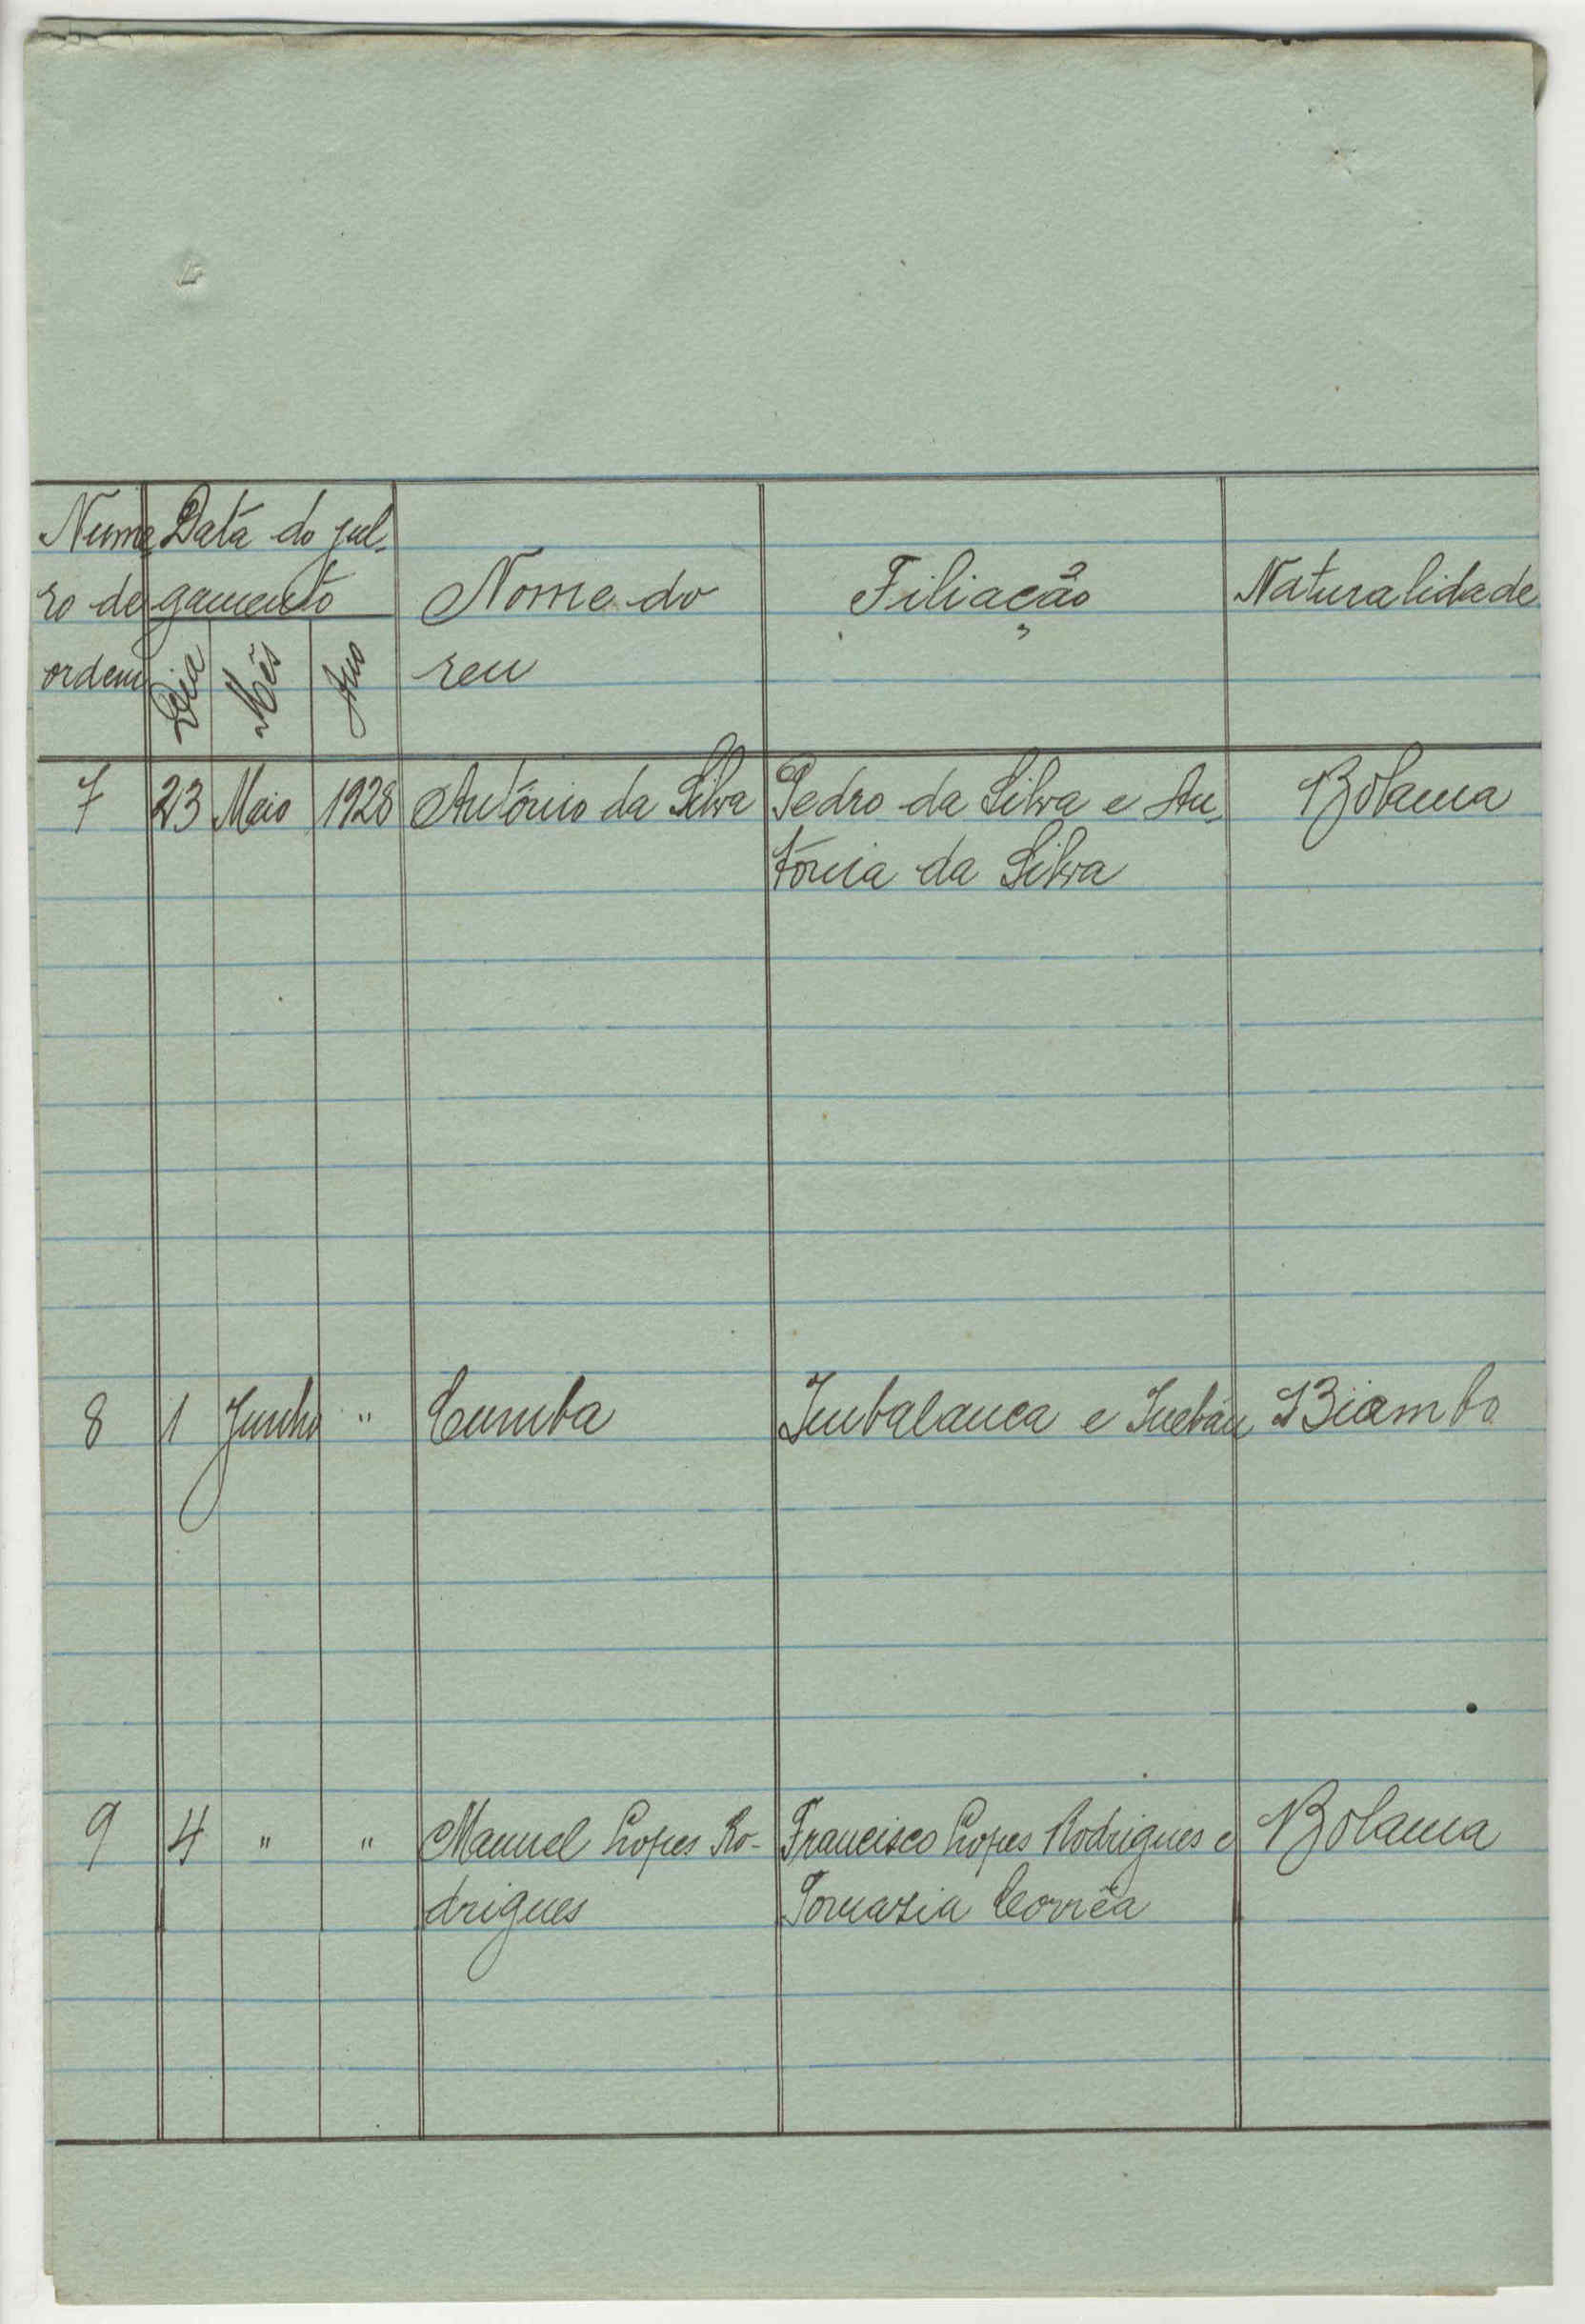 Nume- Data do jul-
ro de gamento Nome do Filiação Naturalidade
ordem Dia Mês Ano reu
7 23 Maio 1928 António da Silva Pedro da Silva e An- Bolama
tónia da Silva
8 1 Junho " Cumba Imbalanca e Biambo
9 4 " " Manuel Lopes Ro- Francisco Lopes Rodrigues e Bolama
drigues Tomazia Corrêa